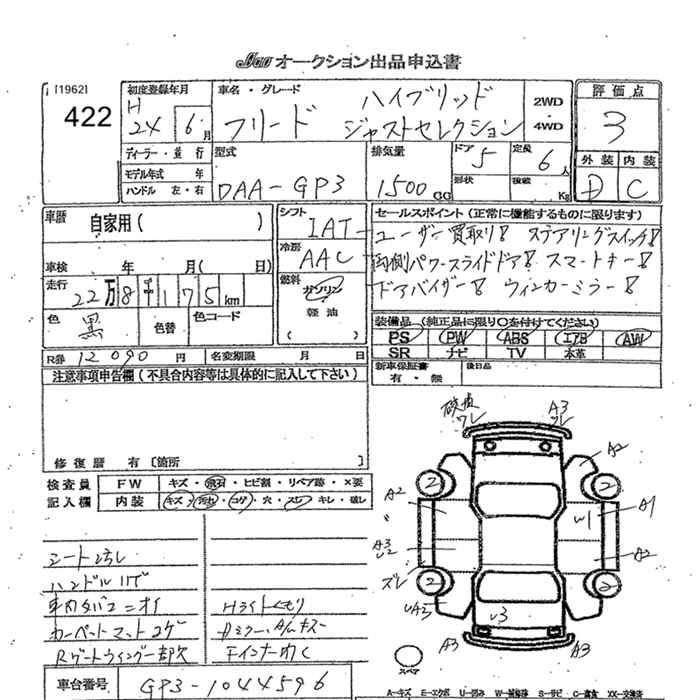 JAA オークション出品申込書
[1962]
422
初度登録年月
H 24 6 月
車名・グレード
フリード ハイブリッド ジャストセレクション
2WD・4WD
評価点
3
外装 内装
D C
ディーラー・並行
モデル年式 年
ハンドル 左・右
型式
DAA-GP3
排気量
1500 CC
ドア 5
定員 6 人
形状
積載 Kg
車歴
自家用( )
車検 年 月( 日)
走行
22万8千175km
色 黒
色替
色コード
シフト
IAT
冷房
AAC
燃料
ガソリン
軽油
( )
セールスポイント(正常に機能するものに限ります)
ユーザー買取り! ステアリングスイッチ!
両側パワースライドドア! スマートキー!
ドアバイザー! ウィンカーミラー!
装備品(純正品に限り○を付けてください)
PS PW ABS エアB AW
SR ナビ TV 本革
新車保証書
有・無
後日品
R券 12090円
名変期限 月 日
注意事項申告欄(不具合内容等は具体的に記入して下さい)
修復歴 有〔箇所 〕
検査員記入欄
FW キズ・飛石・ヒビ割・リペア跡・×要
内装 キズ・汚れ・コゲ・穴・スレ・キレ・破レ
シート汚レ
ハンドルハゲ
車内タバコニオイ
カーペットマットコゲ
Rゲートウイング一部欠
Hライトくもり
車台番号 GP3-1044596
破損
ワレ
A3
ワレ
A2
2
2
A2
W1
A1
A3
U2
A2
ズレ
2
2
UA2
U3
A3
A3
スペア
A-キズ E-エクボ U-凹み W-補修跡 S-サビ C-腐食 XX-交換済